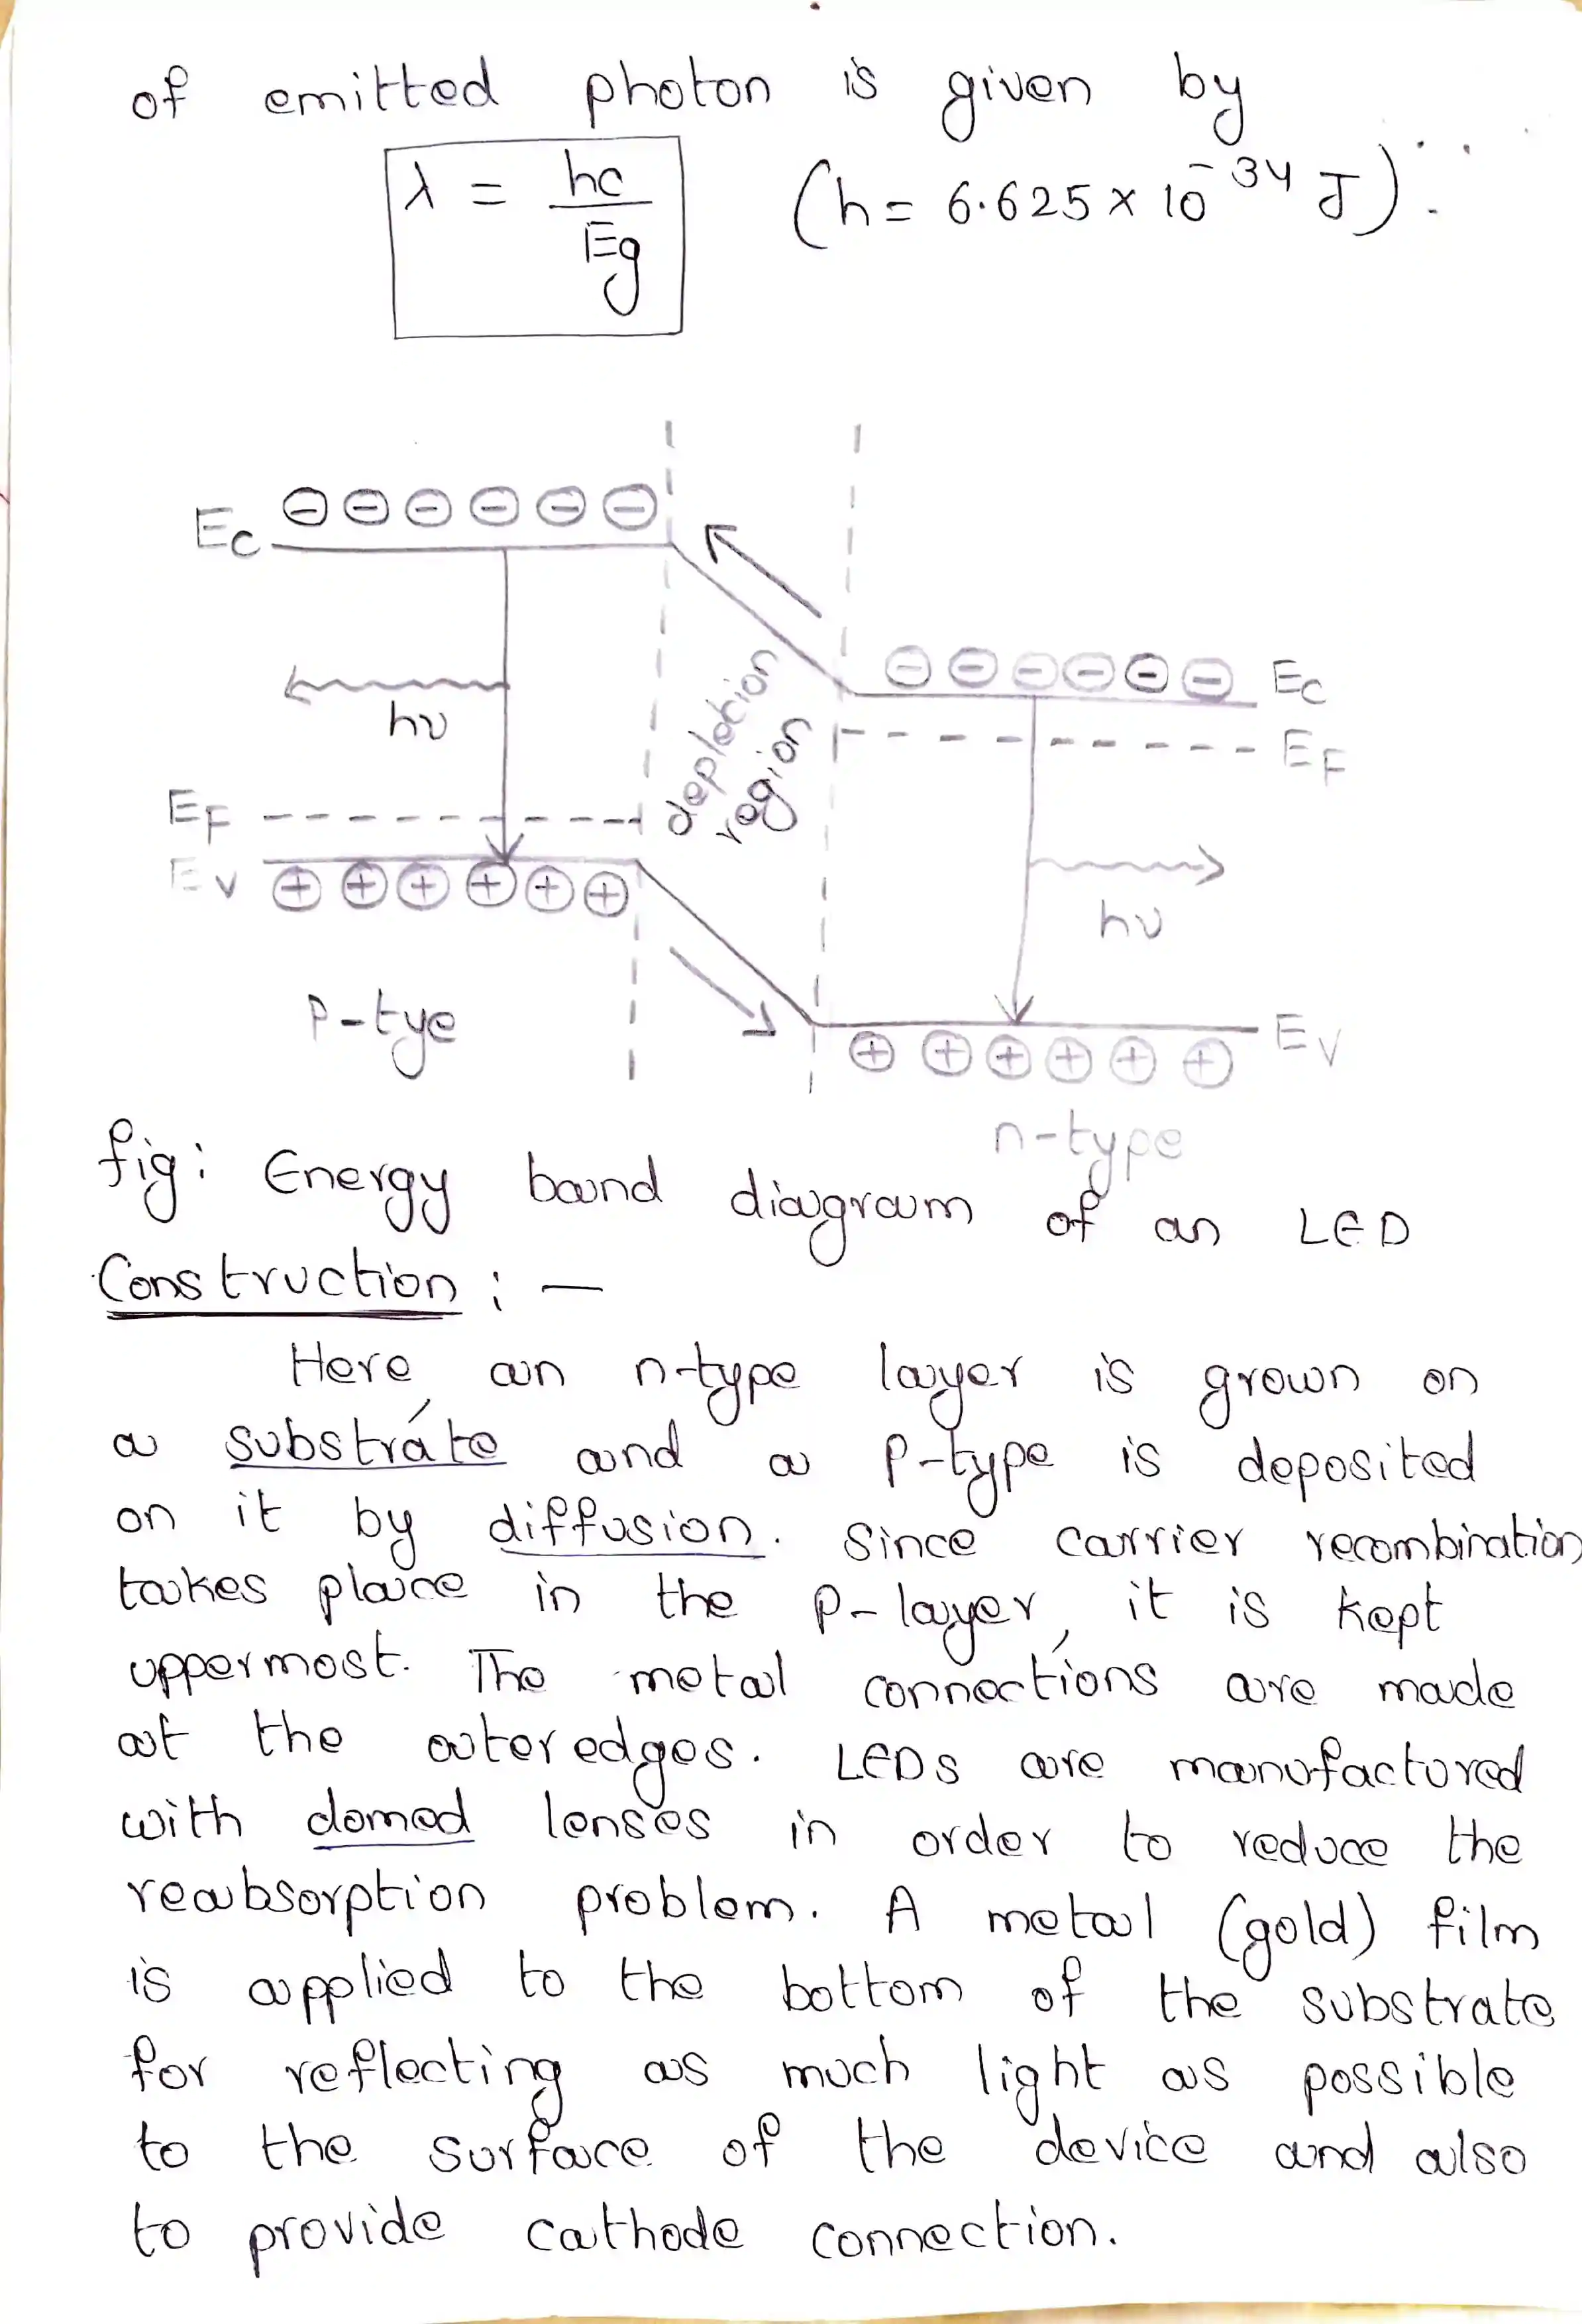 of emitted photon is given by
λ = hc/Eg (h = 6.625 × 10⁻³⁴ J)
Ec
Ec
hν
depletion
region
EF
EF
Ev
hν
P-tye
Ev
n-type
fig: Energy band diagram of an LED
Construction : —
Here, an n-type layer is grown on
a substrate and a P-type is deposited
on it by diffusion. Since carrier recombination
takes place in the P-layer, it is kept
uppermost. The metal connections are made
at the outer edges. LEDs are manufactured
with domed lenses in order to reduce the
reabsorption problem. A metal (gold) film
is applied to the bottom of the substrate
for reflecting as much light as possible
to the surface of the device and also
to provide cathode connection.